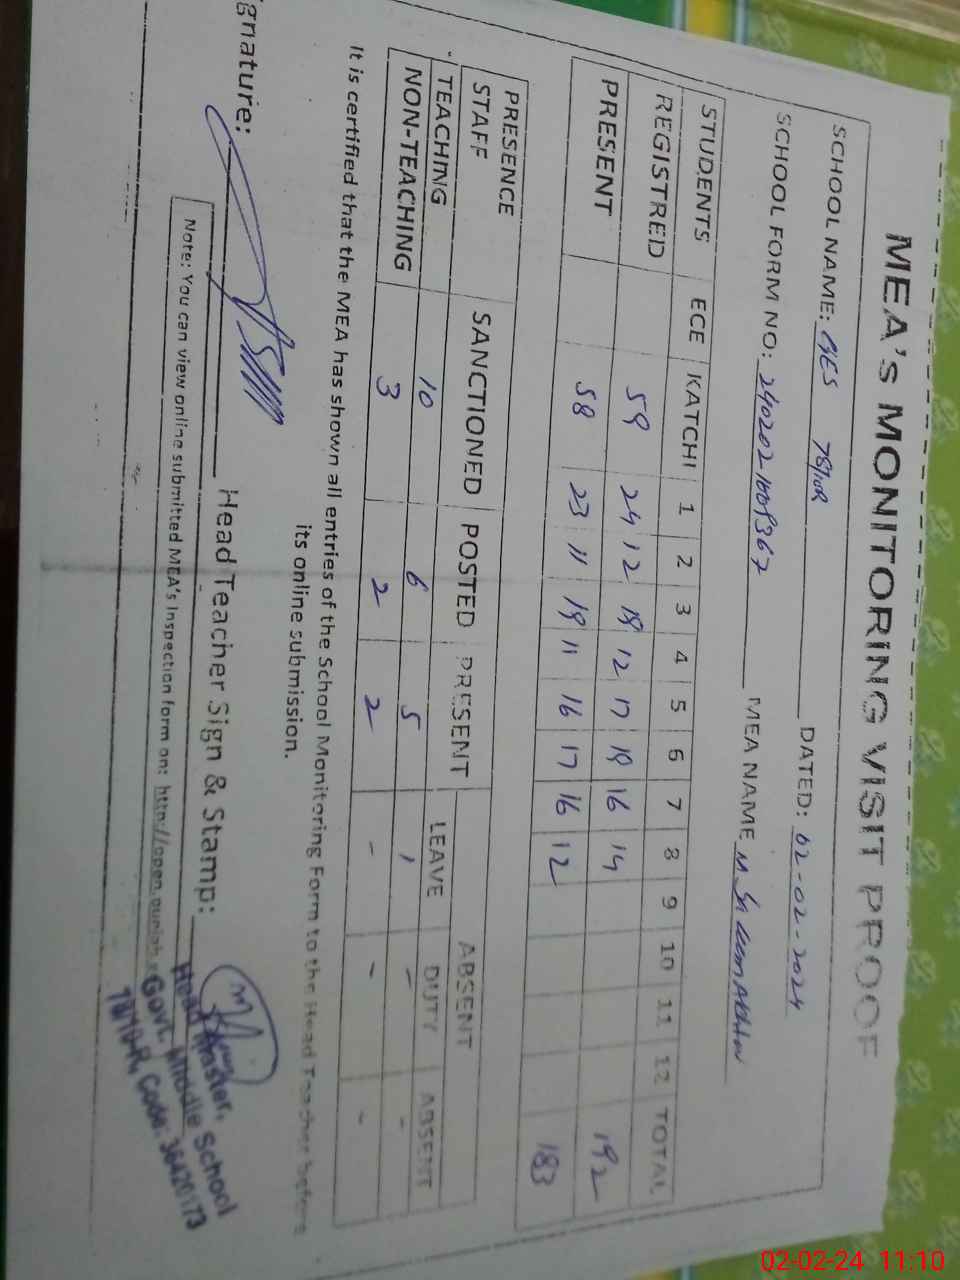 MEA's MONITORING VISIT PROOF
SCHOOL NAME: GES 78/10R DATED: 02-02-2024
SCHOOL FORM NO: MEA NAME M
STUDENTS ECE KATCHI 1 2 3 4 5 6 7 8 9 10 11 12 TOTAL
REGISTRED 59 24 12 19 12 17 19 16 14 192
PRESENT 58 23 11 19 11 16 17 16 12 183
PRESENCE STAFF SANCTIONED POSTED PRESENT ABSENT
LEAVE DUTY ABSENT
TEACHING 10 6 5 1 - -
NON-TEACHING 3 2 2 - - -
It is certified that the MEA has shown all entries of the School Monitoring Form to the Head Teacher before
its online submission.
gnature: Head Teacher Sign & Stamp:
Head Master,
Govt. Middle School
78/10-R, Code: 36420173
Note: You can view online submitted MEA's Inspection form on: http://open.punjab
02-02-24 11:10